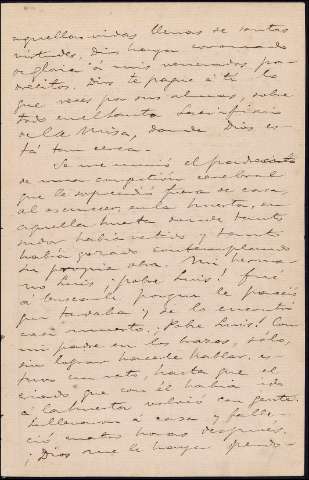 aquellas vidas llenas de santas
virtudes, Dios haya coronado
de gloria á mis venerados pa-
drecitos. Dios te pague á ti lo
que reces por sus almas, sobre
todo en el Santo Sacrificio
de la Misa, donde Dios es-
tá tan cerca.
Se me murió el padrecito
de una congestión cerebral
que le sorprendió fuera de casa,
al oscurecer, en la huerta, en
aquella huerta donde tanto
sudor había vertido y tanto
había gozado contemplando
su propia obra. Mi herma-
no Luis, ¡pobre Luis! fué
á buscarle porque le pareció
que tardaba y se lo encontró
casi muerto. ¡Pobre Luis! Con
mi padre en los brazos, sólo,
sin lograr hacerle hablar, es-
tuvo un rato, hasta que el
criado que con él había ido
á la huerta volvió con gente.
Lo llevaron á casa y falle-
ció cuatro horas después.
¡Dios me le haya perdo-